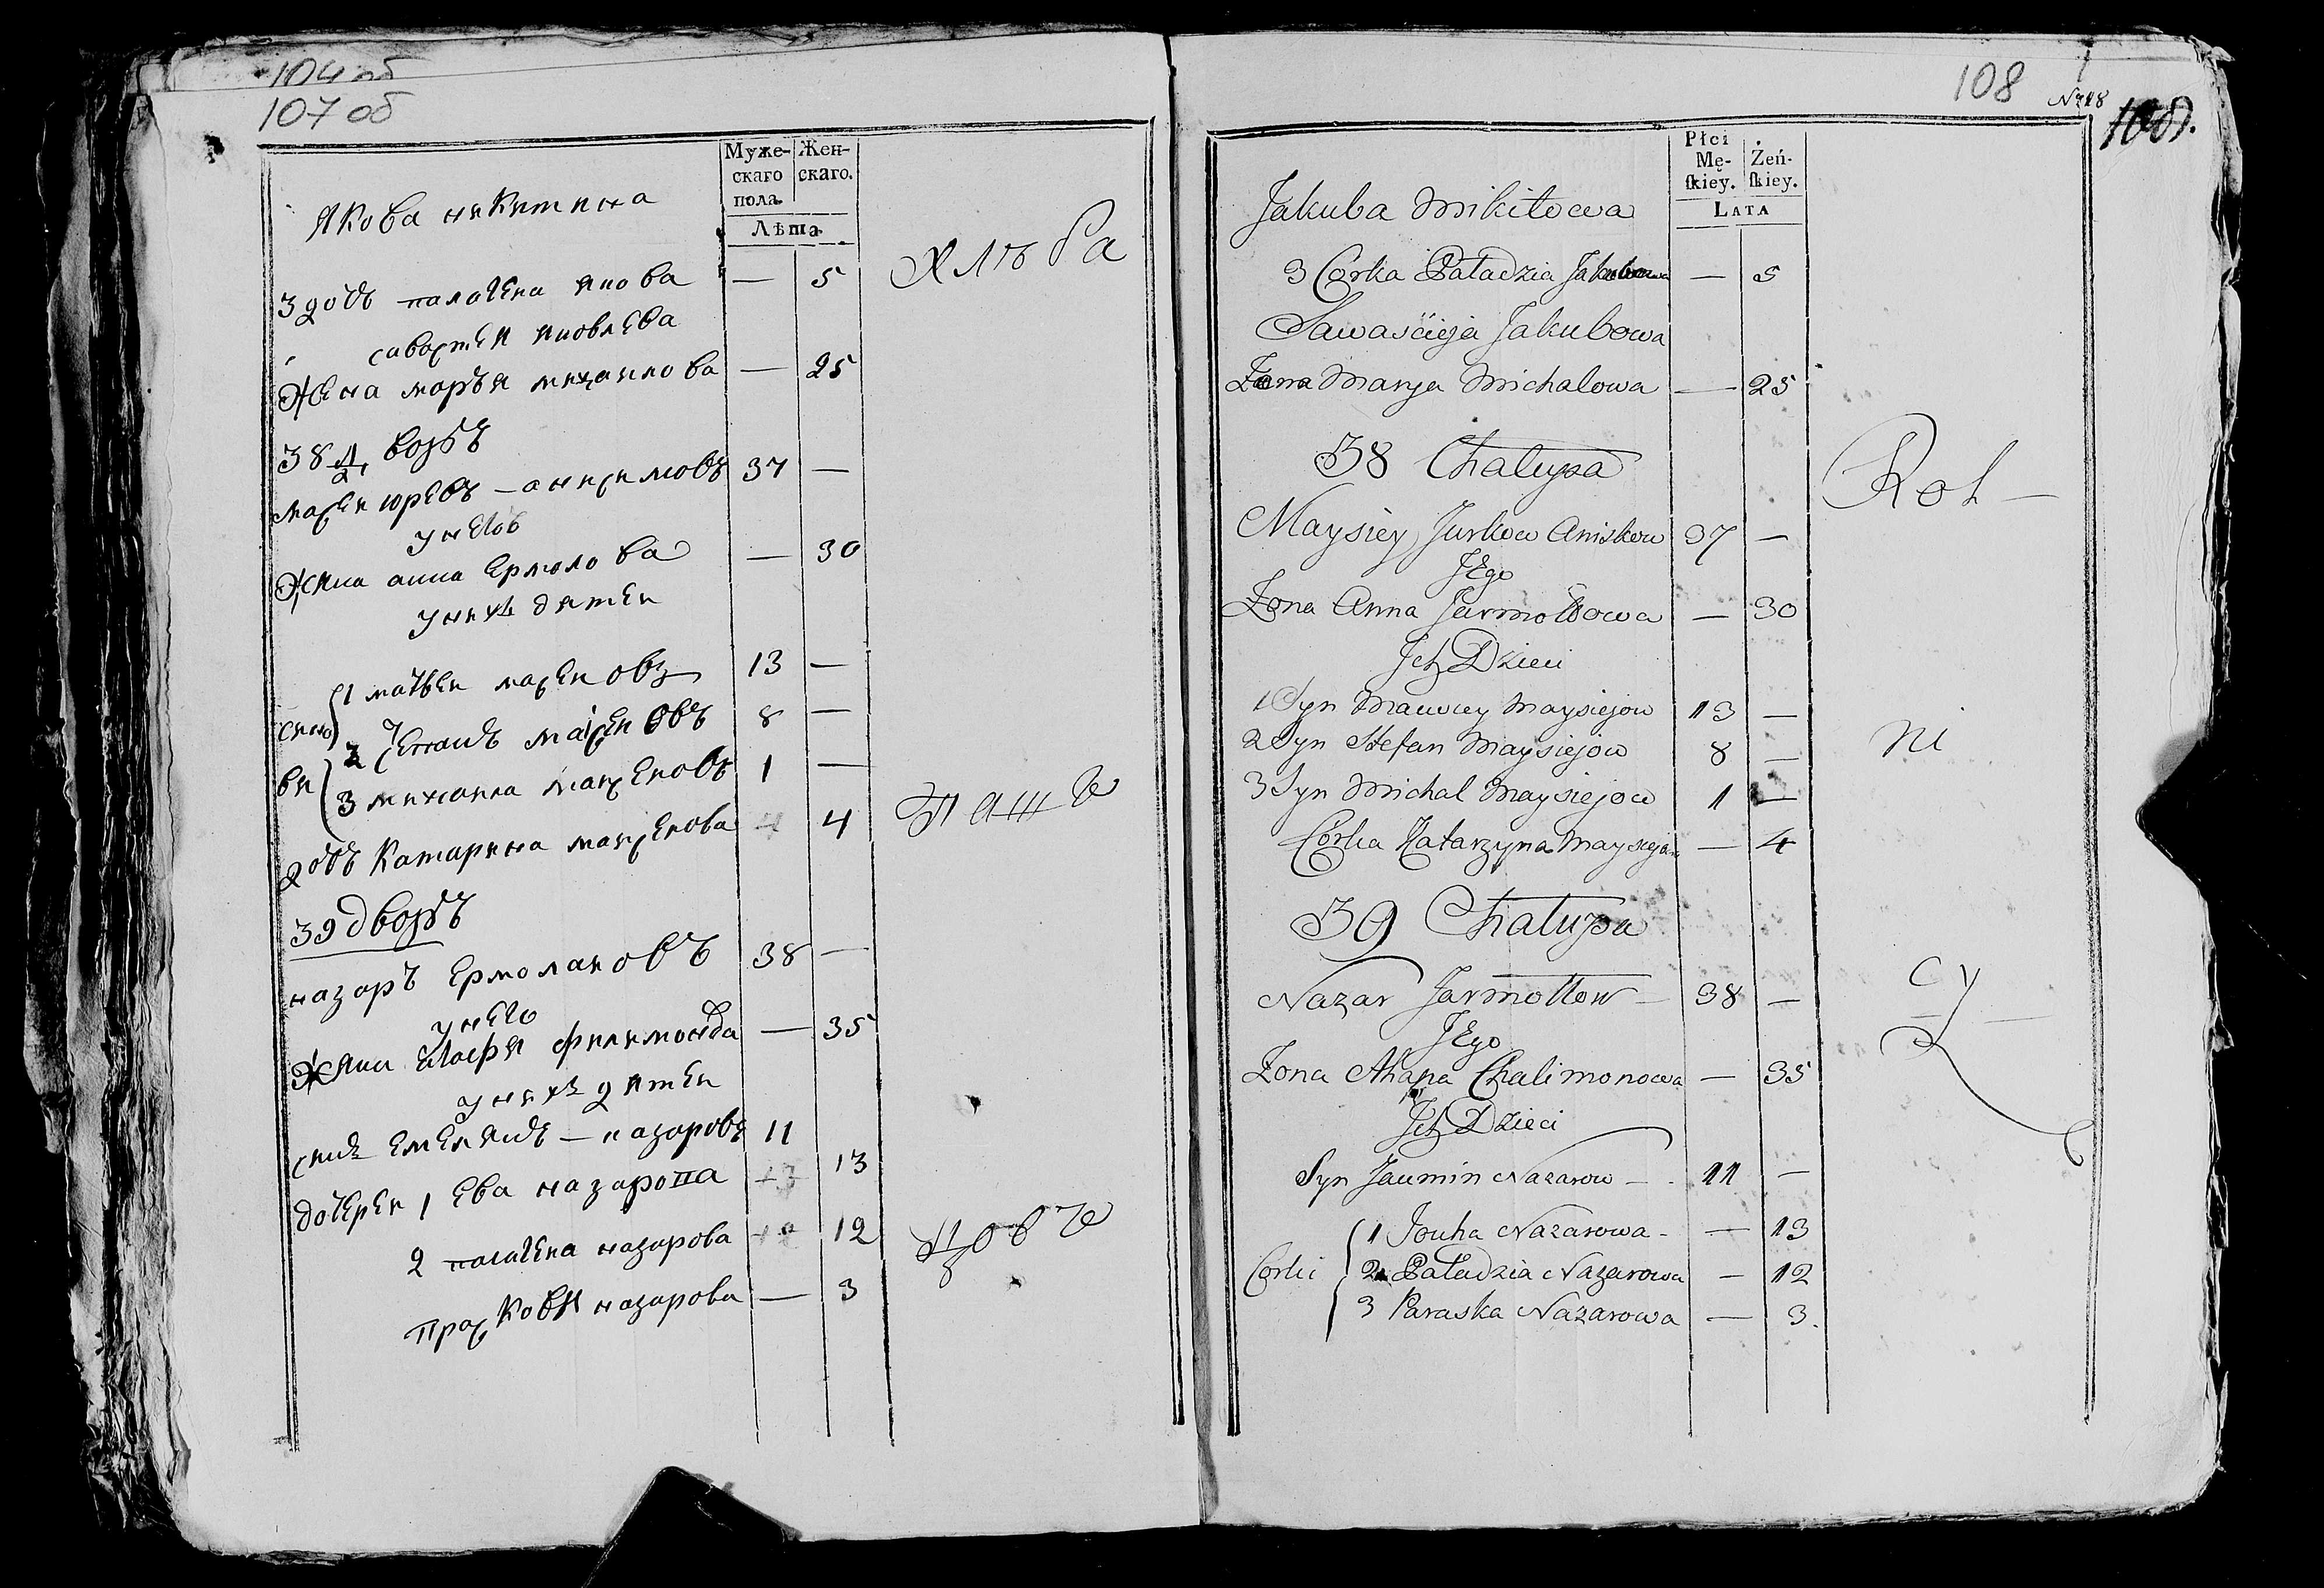 104 об
107 об
Муже-
скаго
пола.
Жен-
скаго.
Лѣта
Якова никитина
3 дочь палагея якова — 5
хлѣба
савастея яковлева
Жена марья михаилова — 25
38 дворъ
марен юревъ — анисимовъ 37 —
у него
Жена анна Ермолова — 30
у нихъ дятеи
сино
ви
1 матвеи масеиовъ 13 —
2 степанъ масеиовъ 8 —
3 михаила масеиовъ 1 —
дочь Катарина масеиова 4
паше
39 дворъ
назаръ Ермолаиовъ 38 —
у него
Жана агафя филимонова — 35
у нихъ дятеи
синъ Емелянъ — назаровъ 11
дочереи 1 Ева назарова 13
2 палагея назарова 12
прасковя назарова — 3
108
No 18
108.
Płci
Mę-
skiey.
Żeń-
skiey.
LATA
Jakuba Mikitowa
3 Corka Paładzia Jakubowa — 5
Sawaścieja Jakubowa
Zona Marya Michalowa — 25
38 Chałupa
Rol —
Maysiey Jurkow Aniskow 37 —
JEgo
Zona Anna Jarmołowa — 30
Jch Dzieci
1 Syn Mauwiey Maysiejow 13 —
2 Syn Stefan Maysiejow 8 —
ni
3 Syn Michał Maysiejow 1 —
Corka Katarzyna Maysiejow — 4
39 Chałupa
cy
Nazar Jarmołłow — 38 —
JEgo
Zona Ahapa Chalimonowa — 35
Jch Dzieci
Syn Jaumin Nazarow — 11 —
Corki
1 Jouha Nazarowa — 13
2 Paładzia Nazarowa — 12
3 Paraska Nazarowa — 3.